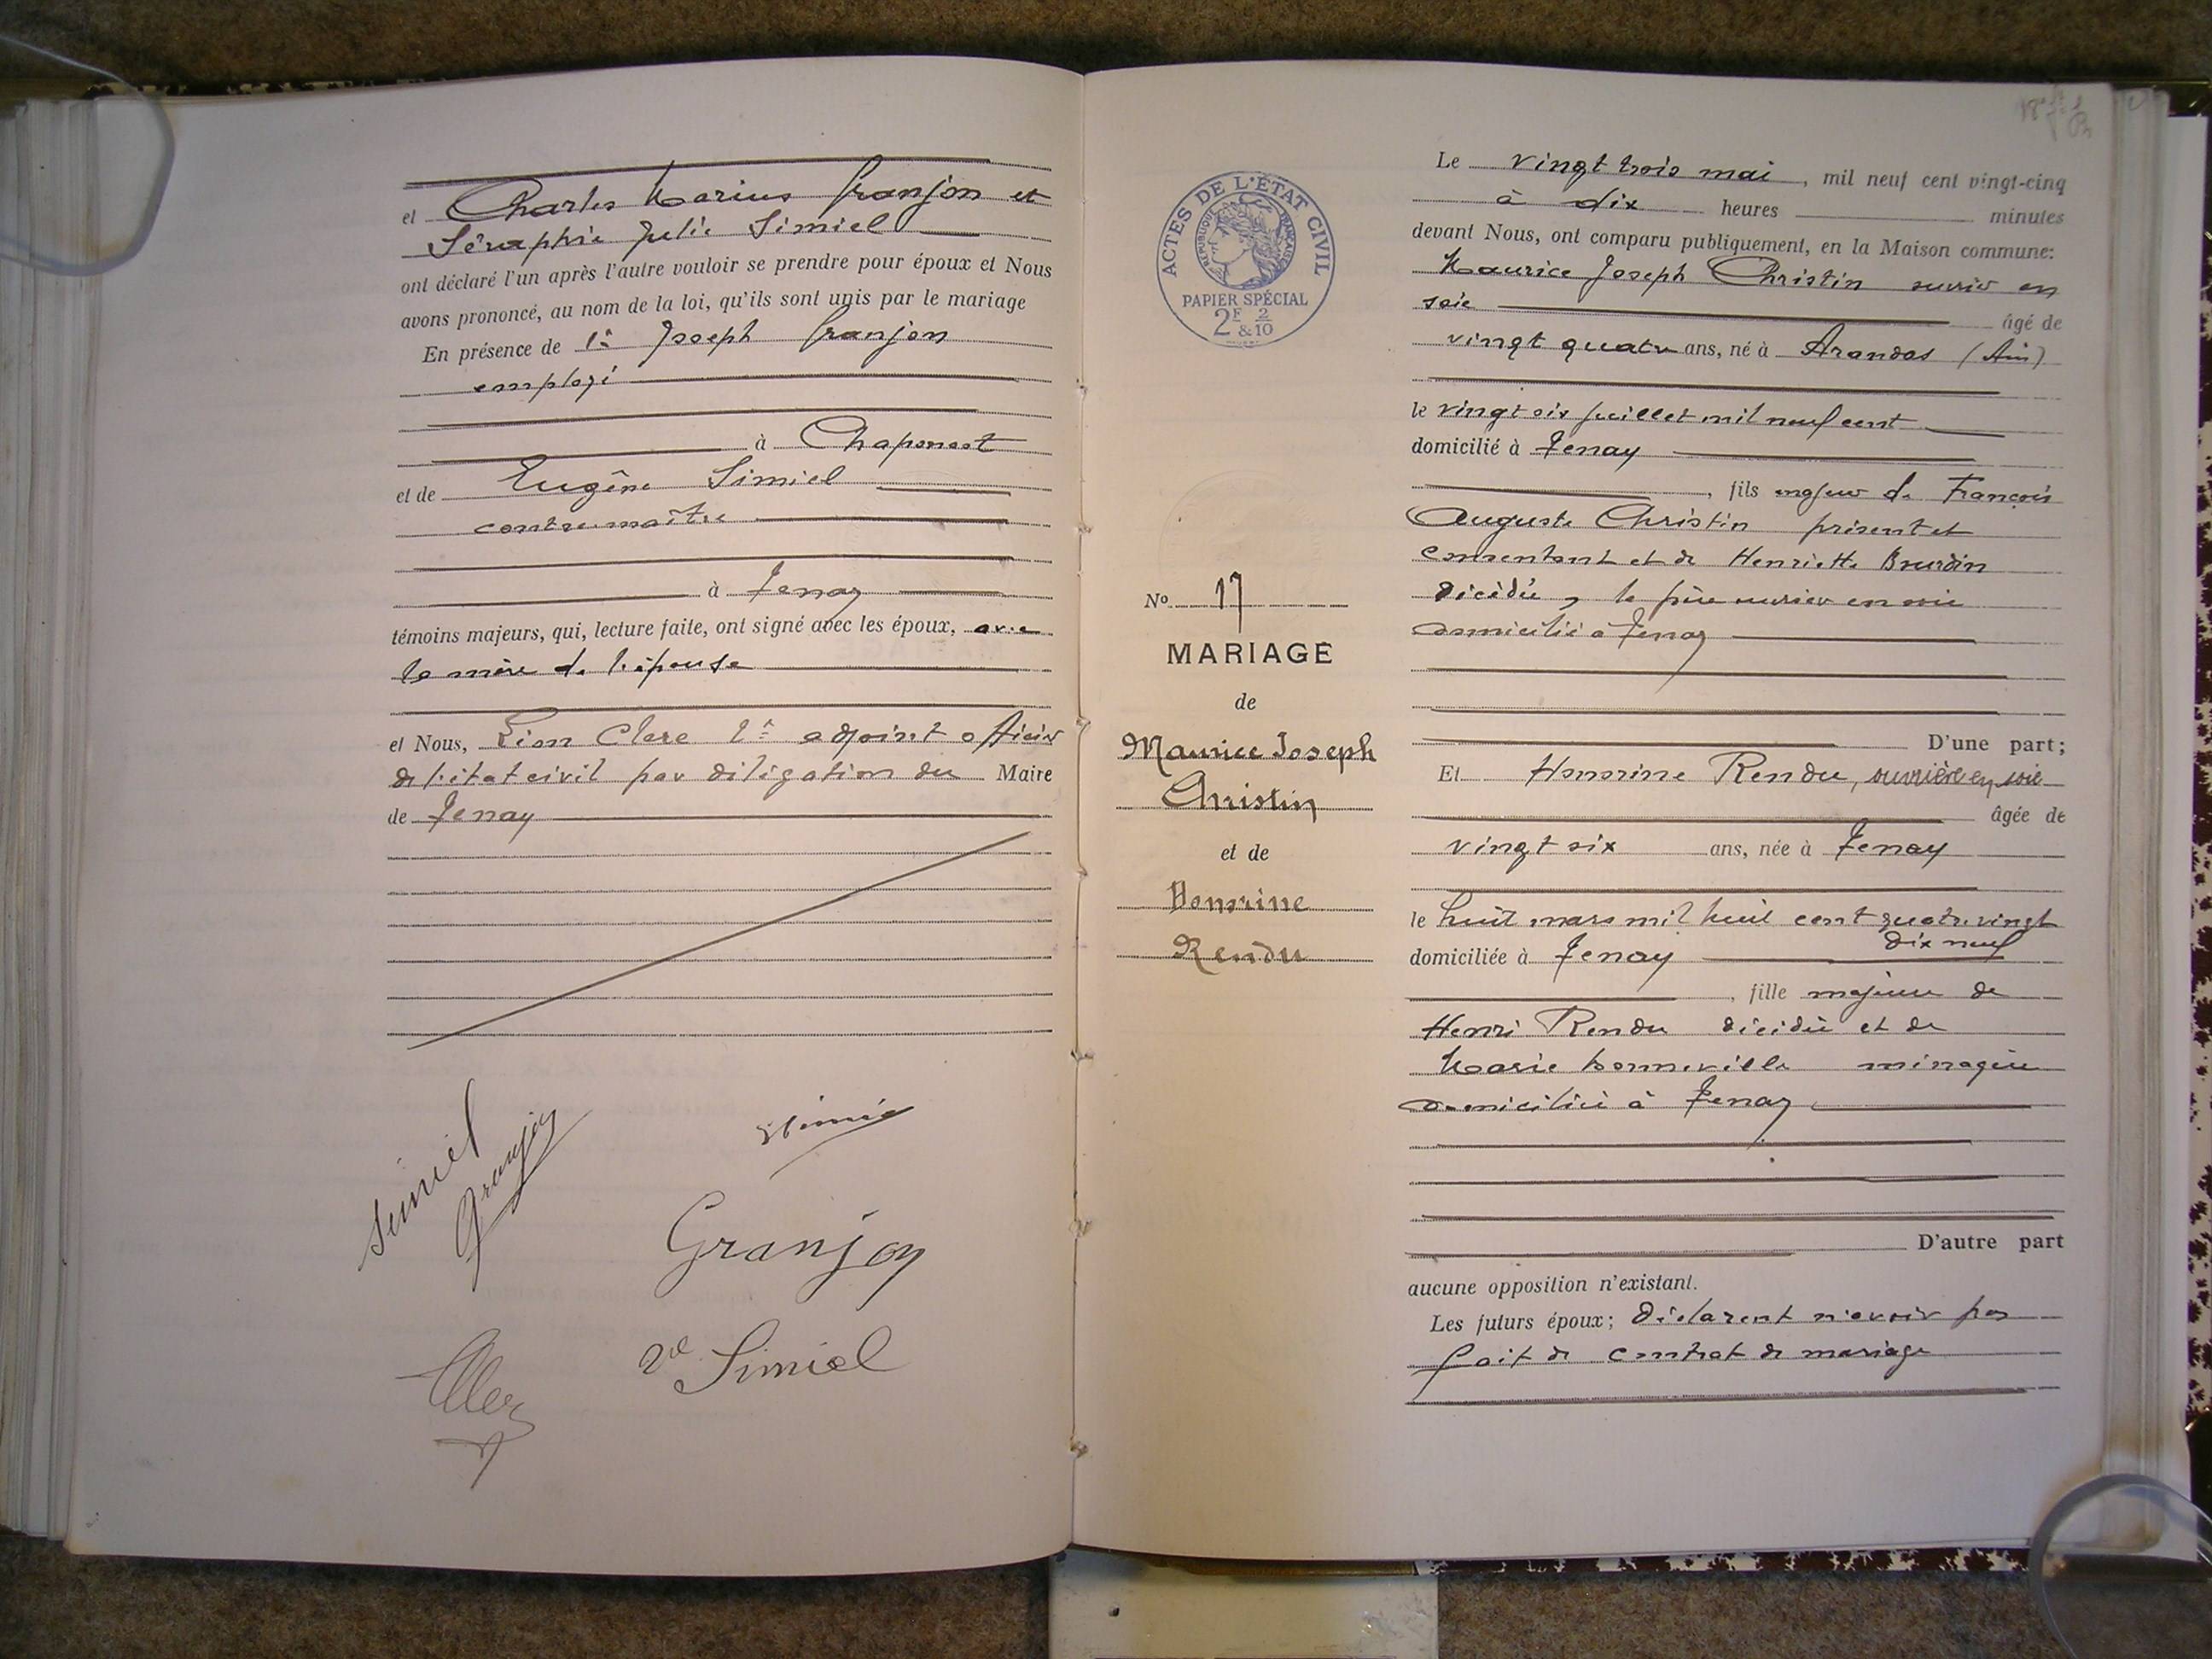 et Charles Marius Granjon et
Séraphie Julie Simiel
ont déclaré l'un après l'autre vouloir se prendre pour époux et Nous
avons prononcé, au nom de la loi, qu'ils sont unis par le mariage
En présence de 1º Joseph Granjon
employé
à Chaponost
et de Eugène Simiel
contremaître
à Tenay
témoins majeurs, qui, lecture faite, ont signé avec les époux, avec
la mère de l'épouse
et Nous, Léon Clerc 1er adjoint officier
de l'état civil par délégation du Maire
de Tenay
Simiel
Granjon
Simiel
Granjon
Vve Simiel
18e f.
Le vingt trois mai, mil neuf cent vingt-cinq
à dix heures minutes
devant Nous, ont comparu publiquement, en la Maison commune:
Maurice Joseph Christin ouvrier en
soie âgé de
vingt quatre ans, né à Arandas (Ain)
le vingt six juillet mil neuf cent
domicilié à Tenay
, fils majeur de François
Auguste Christin présent et
consentant et de Henriette Bourdin
décédée, le père ouvrier en soie
domicilié à Tenay
D'une part;
Et Honorine Rendu, ouvrière en soie
âgée de
vingt six ans, née à Tenay
le huit mars mil huit cent quatre vingt
dix neuf
domiciliée à Tenay
, fille majeure de
Henri Rendu décédé et de
Marie Bonneville ménagère
domiciliée à Tenay
D'autre part
aucune opposition n'existant.
Les futurs époux; déclarent n'avoir pas
fait de contrat de mariage
ACTES DE L'ÉTAT CIVIL
RÉPUBLIQUE FRANÇAISE
PAPIER SPÉCIAL
2F & 2/10
No 17
MARIAGE
de
Maurice Joseph
Christin
et de
Honorine
Rendu